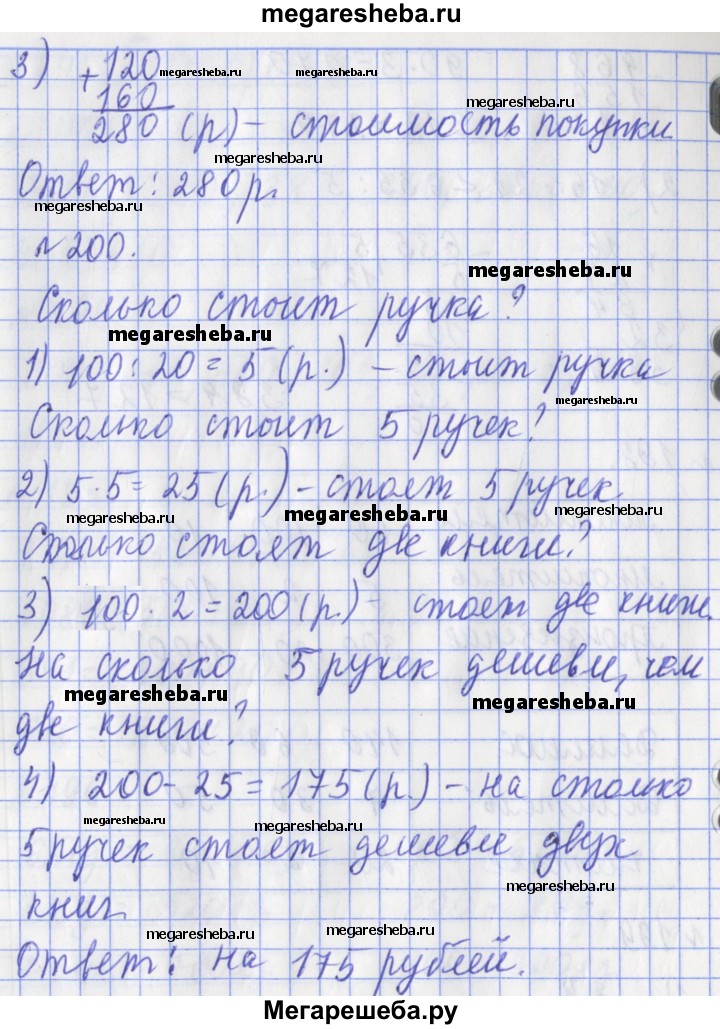 megaresheba.ru
3) +120
megaresheba.ru megaresheba.ru
160
megaresheba.ru
280 (р) – стоимость покупки
megaresheba.ru
Ответ: 280 р.
megaresheba.ru
№ 200.
megaresheba.ru
Сколько стоит ручка?
megaresheba.ru
1) 100 : 20 = 5 (р.) – стоит ручка
megaresheba.ru
Сколько стоит 5 ручек?
2) 5 · 5 = 25 (р.) – стоят 5 ручек
megaresheba.ru megaresheba.ru megaresheba.ru
Сколько стоят две книги?
3) 100 · 2 = 200 (р.) – стоят две книги.
На сколько 5 ручек дешевле, чем
megaresheba.ru megaresheba.ru
две книги?
4) 200 – 25 = 175 (р.) – на столько
megaresheba.ru megaresheba.ru
5 ручек стоят дешевле двух
megaresheba.ru
книг
megaresheba.ru megaresheba.ru
Ответ: на 175 рублей.
Мегарешеба.ру